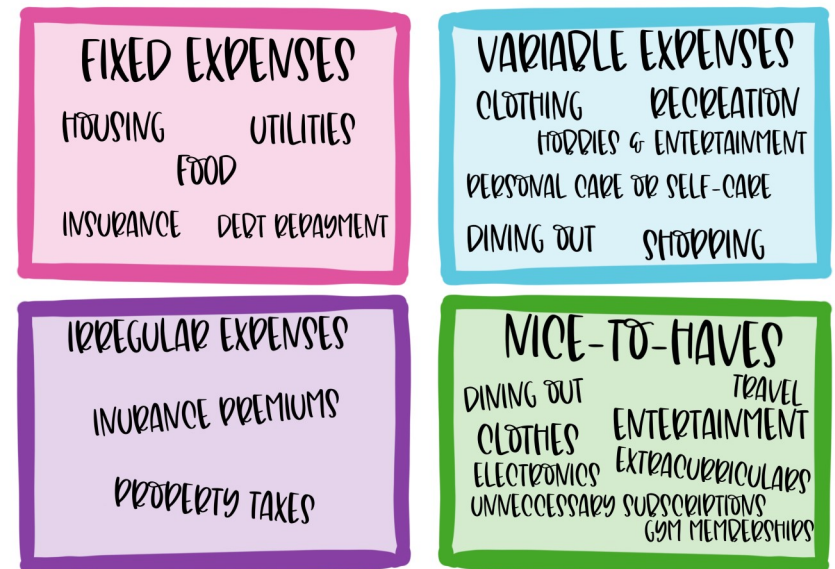 FIXED EXPENSES
HOUSING UTILITIES
FOOD
INSURANCE DEBT REPAYMENT
VARIABLE EXPENSES
CLOTHING RECREATION
HOBBIES & ENTERTAINMENT
PERSONAL CARE OR SELF-CARE
DINING OUT SHOPPING
IRREGULAR EXPENSES
INURANCE PREMIUMS
PROPERTY TAXES
NICE-TO-HAVES
DINING OUT TRAVEL
CLOTHES ENTERTAINMENT
ELECTRONICS EXTRACURRICULARS
UNNECCESSARY SUBSCRIPTIONS
GYM MEMBERSHIPS